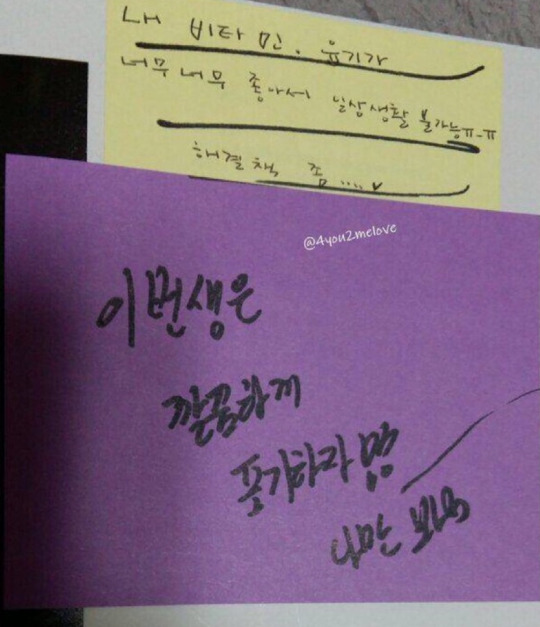 내 비타민. 윤기가
너무너무 좋아서 일상생활 불가능ㅠ-ㅠ
해결책 좀 ....
@4you2melove
이번생은
깔끔하게
포기하자 명
나만 봐